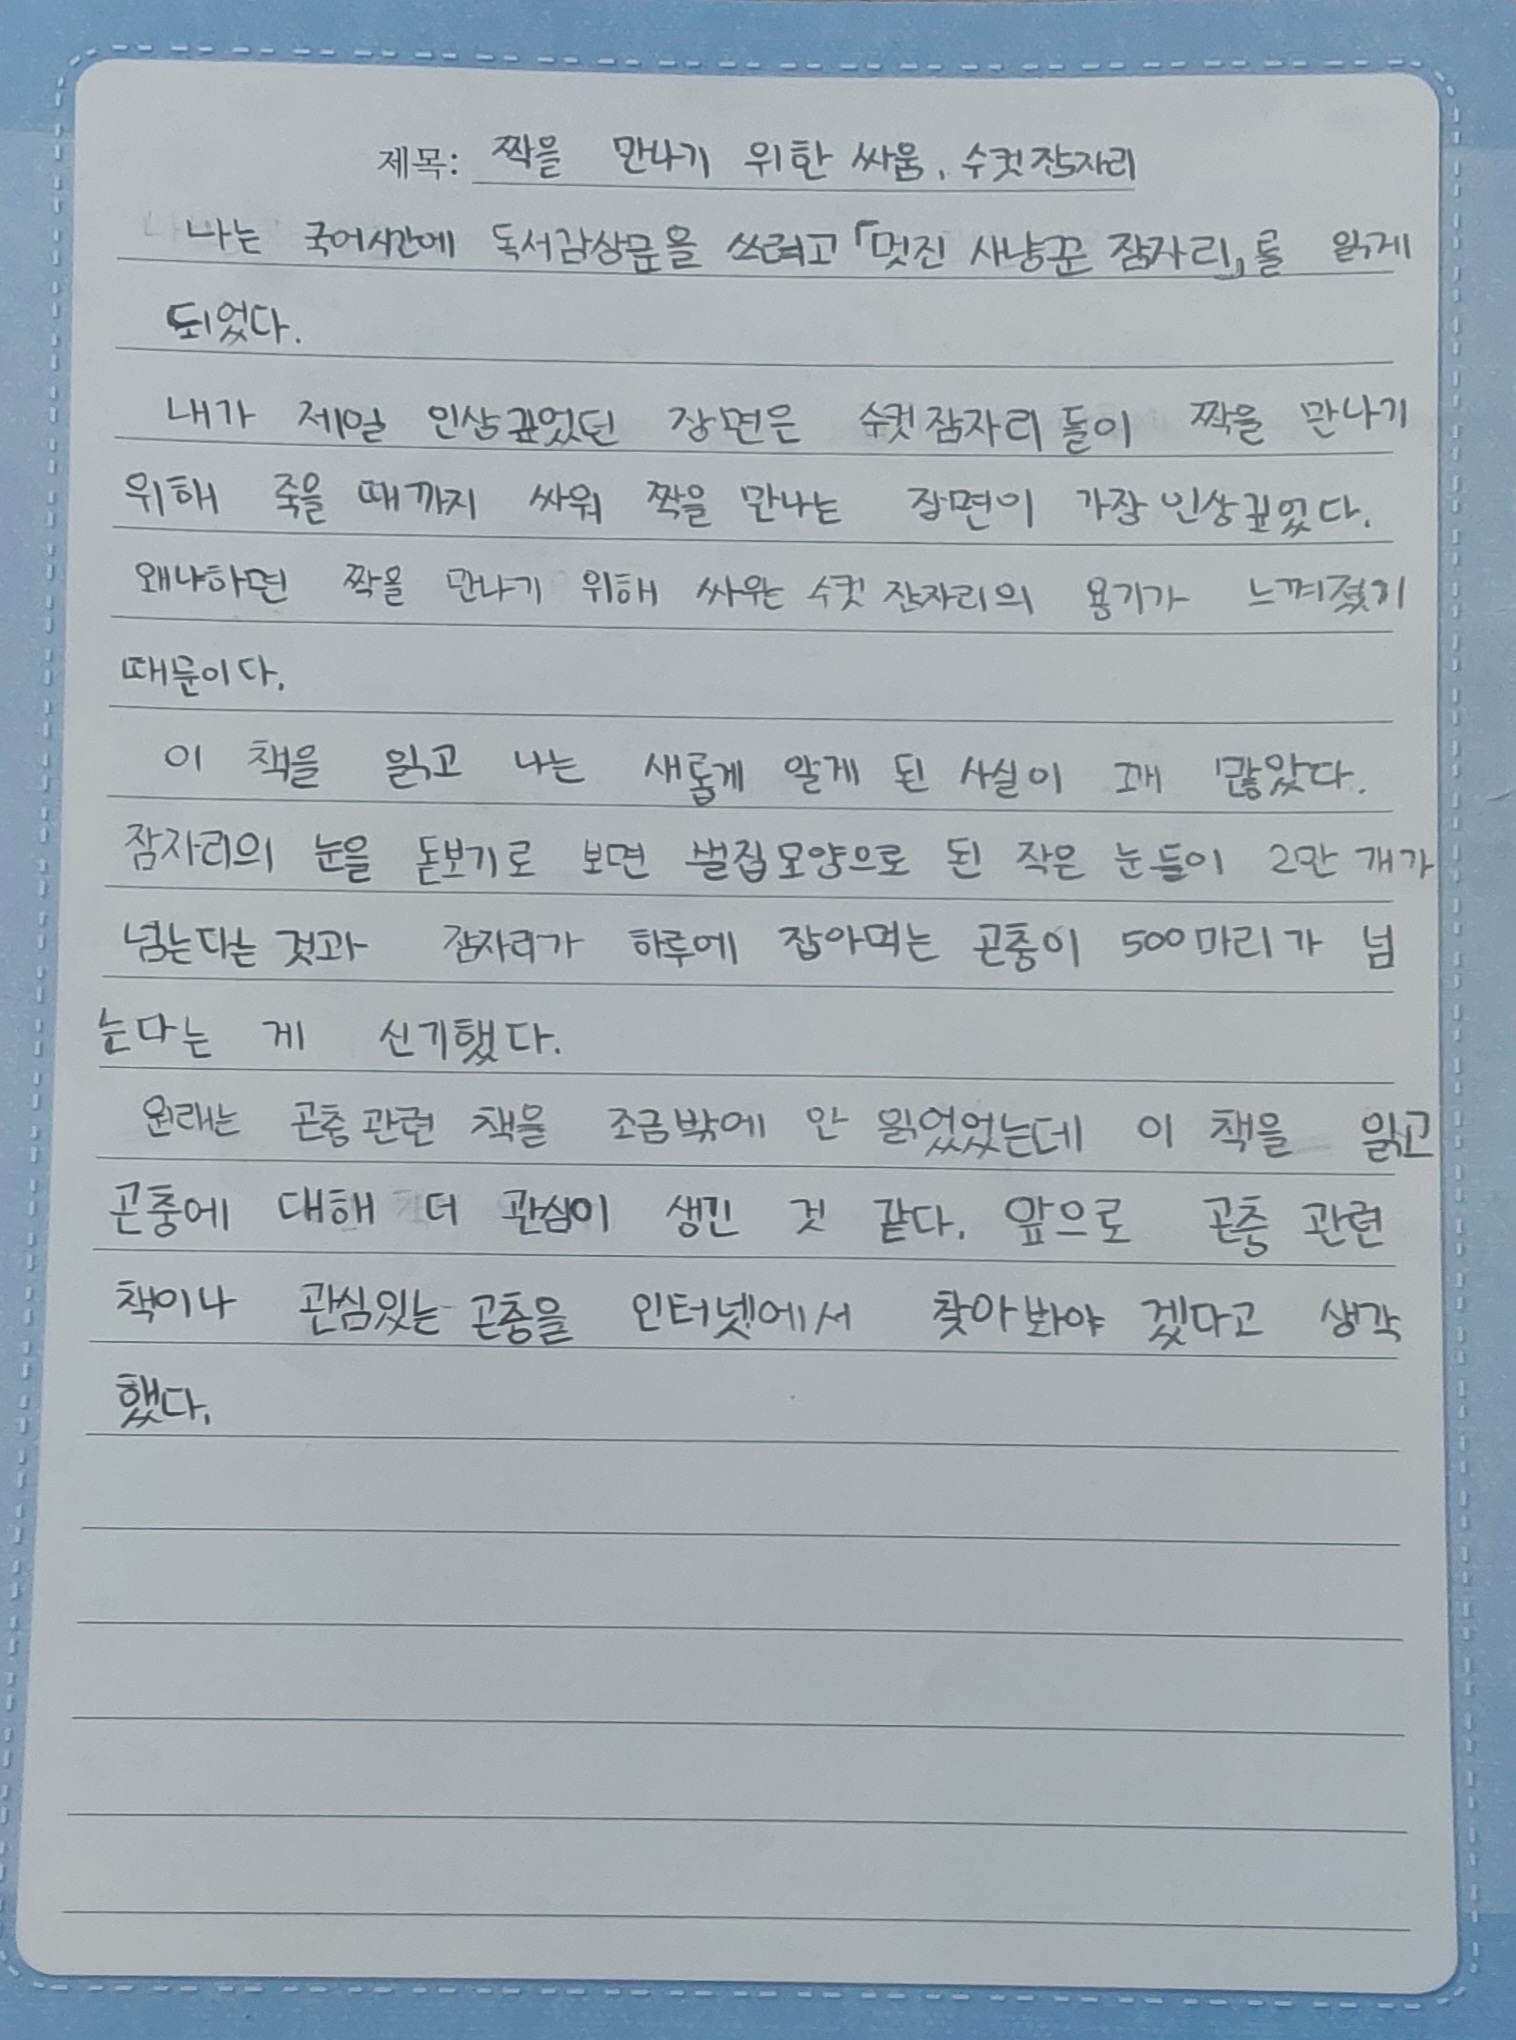 제목: 짝을 만나기 위한 싸움, 수컷잠자리
나는 국어시간에 독서감상문을 쓰려고 「멋진 사냥꾼 잠자리」를 읽게
되었다.
내가 제일 인상깊었던 장면은 수컷잠자리들이 짝을 만나기
위해 죽을 때까지 싸워 짝을 만나는 장면이 가장 인상깊었다.
왜냐하면 짝을 만나기 위해 싸우는 수컷 잠자리의 용기가 느껴졌기
때문이다.
이 책을 읽고 나는 새롭게 알게 된 사실이 꽤 많았다.
잠자리의 눈을 돋보기로 보면 벌집모양으로 된 작은 눈들이 2만 개가
넘는다는 것과 잠자리가 하루에 잡아먹는 곤충이 500마리가 넘
는다는 게 신기했다.
원래는 곤충관련 책을 조금밖에 안 읽었었는데 이 책을 읽고
곤충에 대해 더 관심이 생긴 것 같다. 앞으로 곤충 관련
책이나 관심있는 곤충을 인터넷에서 찾아봐야 겠다고 생각
했다.